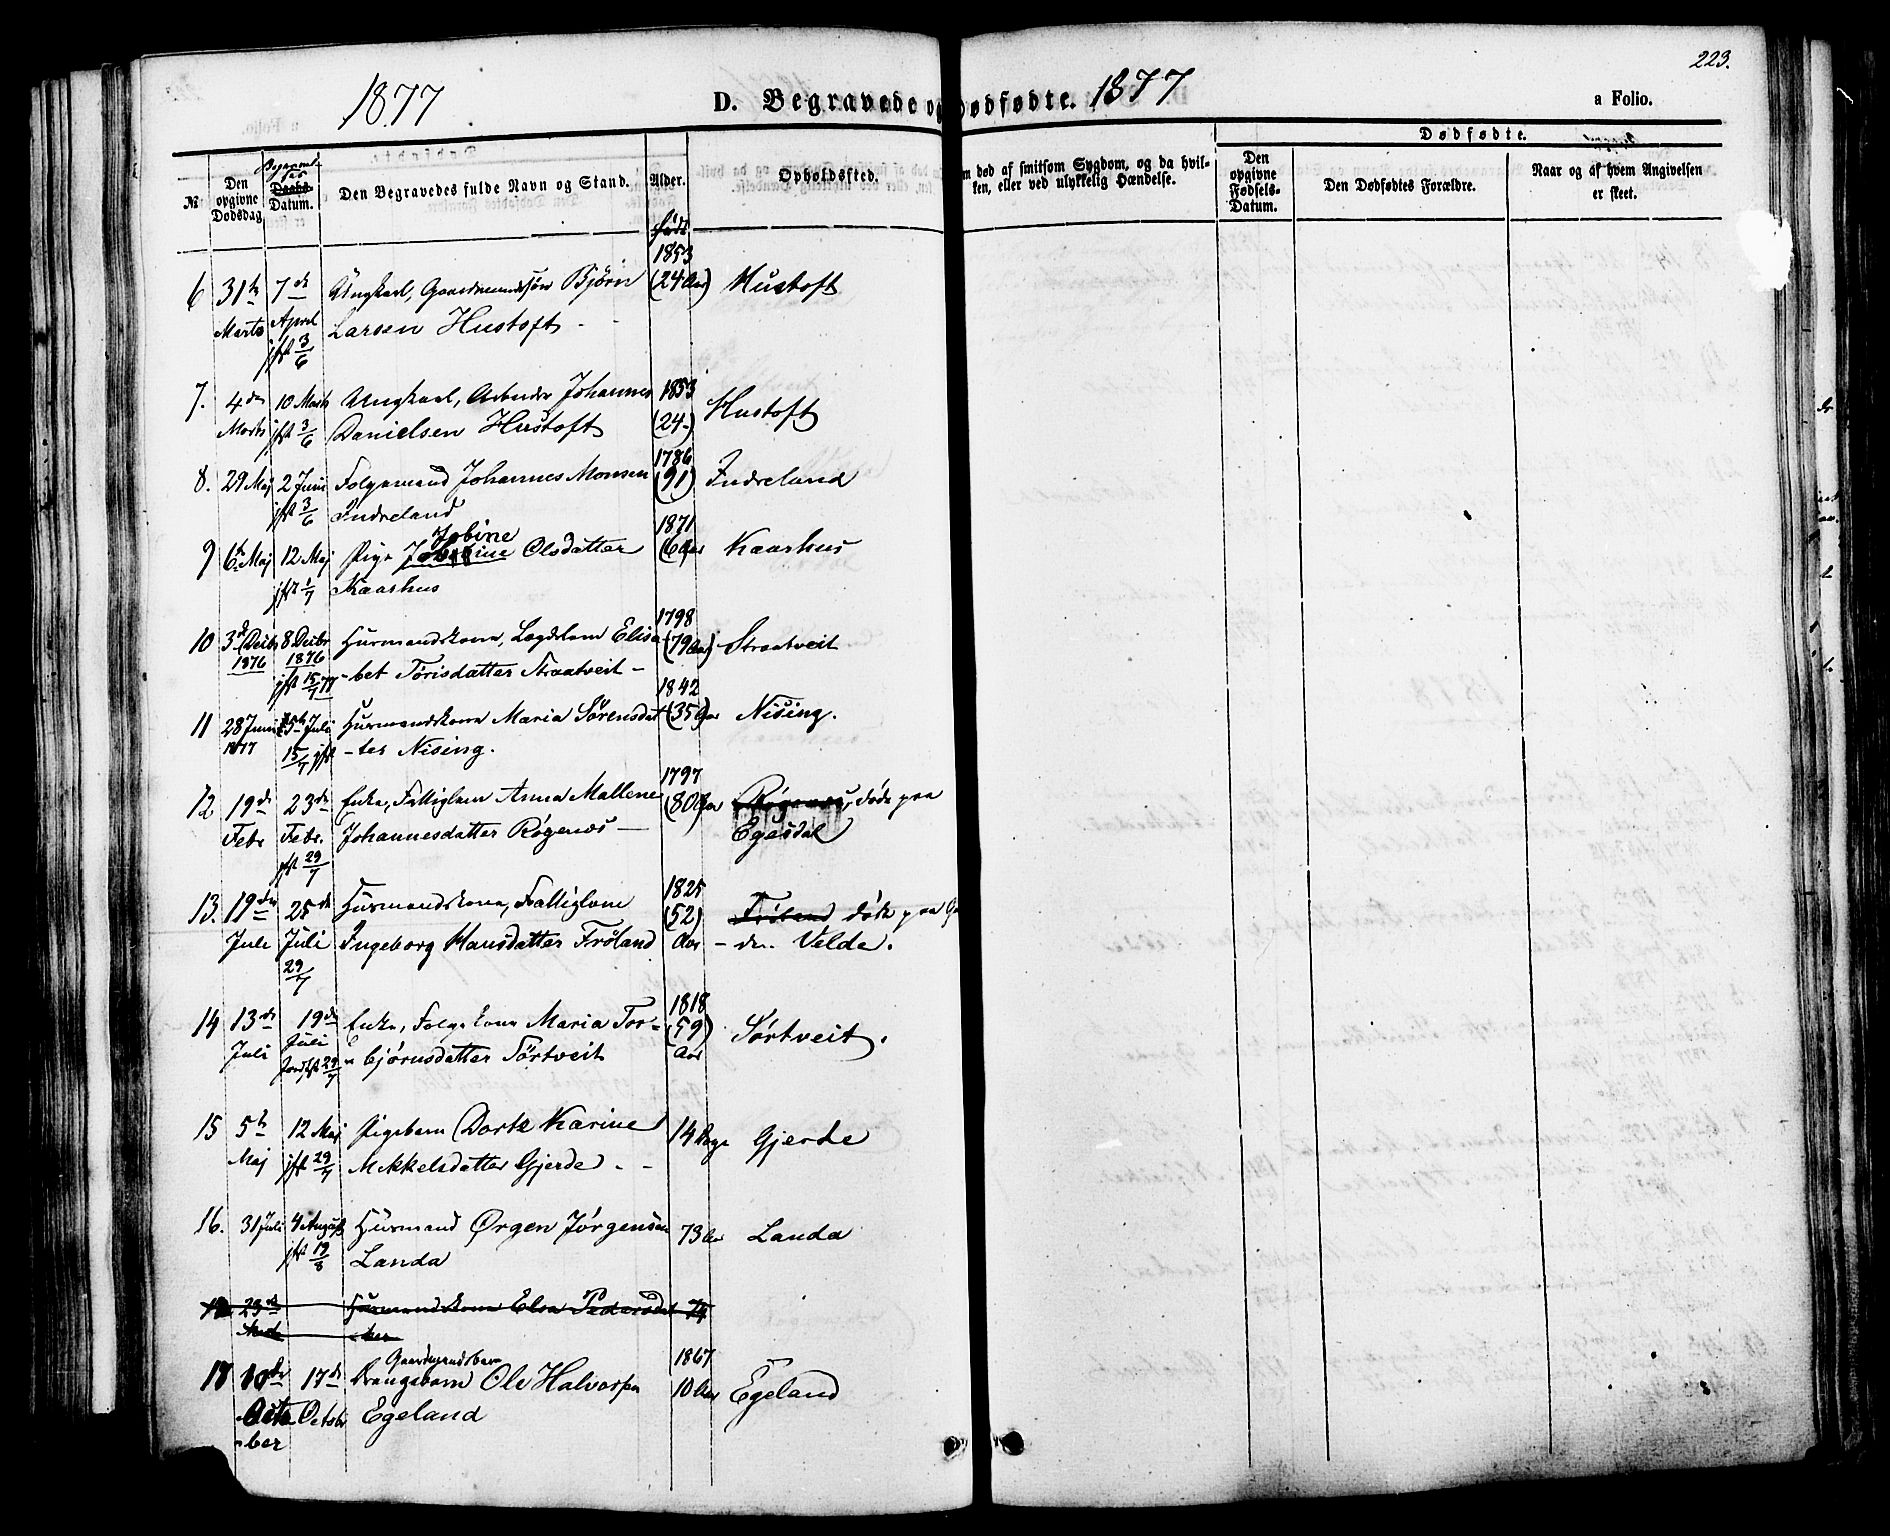 223.
1877 D. Begravede og Dødfødte. 1877 a Folio.
Dødfødte.
№ Den opgivne Dødsdag Begravelses Datum. Den Begravedes fulde Navn og Stand. Alder. Opholdssted. død af smitsom Sygdom, og da hvilken, eller ved ulykkelig Hændelse. Den opgivne Fødsels-Datum. Den Dødfødtes Forældre. Naar og af hvem Angivelsen er skeet.
født
1853
6 31te 7de Ungkarl, Gaardmandssøn Bjørn (24 Aar) Hustoft
Marts April Larsen Hustoft
jfst 3/6
7. 4de 10 Marts Ungkarl, Arbeider Johannes 1853 Hustoft
Marts jfst 3/6 Danielsen Hustoft (24-)
1786
8. 29 Maj 2 Juni Folgemand Johannes Monsen (91) Indreland
jfst 3/6 Indreland
Jobine 1871
9 6te Maj 12 Maj Pige Olsdatter (6 Aar Kaarhus
jfst 1/7 Kaarhus
1798
10 3de Decbr 8 Decbr Husmandskone, Lægdslem Elisa- (79 Aar) Straatveit
1876 1876
jfst 15/7 77 -bet Tørisdatter Straatveit -
1842
11 28 Juni 5te Juli Husmandskone Maria Sørensdat (35 Aar Nising.
1877 15/7 jfst -ter Nising.
1797
12 19de 23de Enke, Fattiglem Anna Mallene (80 Aar Røgenæs, døde paa
Febr Febr. Johannesdatter Røgenæs — Egesdal
jfst 29/7
1825
13. 19de 25de Husmandskone, Fattiglem (52) Frøland døde paa
Juli Juli Ingeborg Hansdatter Frøland Aar - den Velde.
29/7
1818
14 13de 19de Enke, Folgekone Maria Tor- (59) Sørtveit.
Juli Juli bjørnsdatter Sørtveit Aar
jfst 29/7
15 5te 12 Maj Pigebarn Dorte Karine 14 Dage Gjerde
Maj jfst 29/7 Mikkelsdatter Gjerde. -
16. 31 Juli 4 August Husmand Ørgen Jørgensen 73 Aar Landa
jfst 19/8 Landa
23de Husmandskone Elen Pedersdat 74
ter
Gaardmandsbarn 1867
17 10de 17de Drengebarn Ole Halvorsen 10 Aar Egeland
Octo October Egeland
-ber